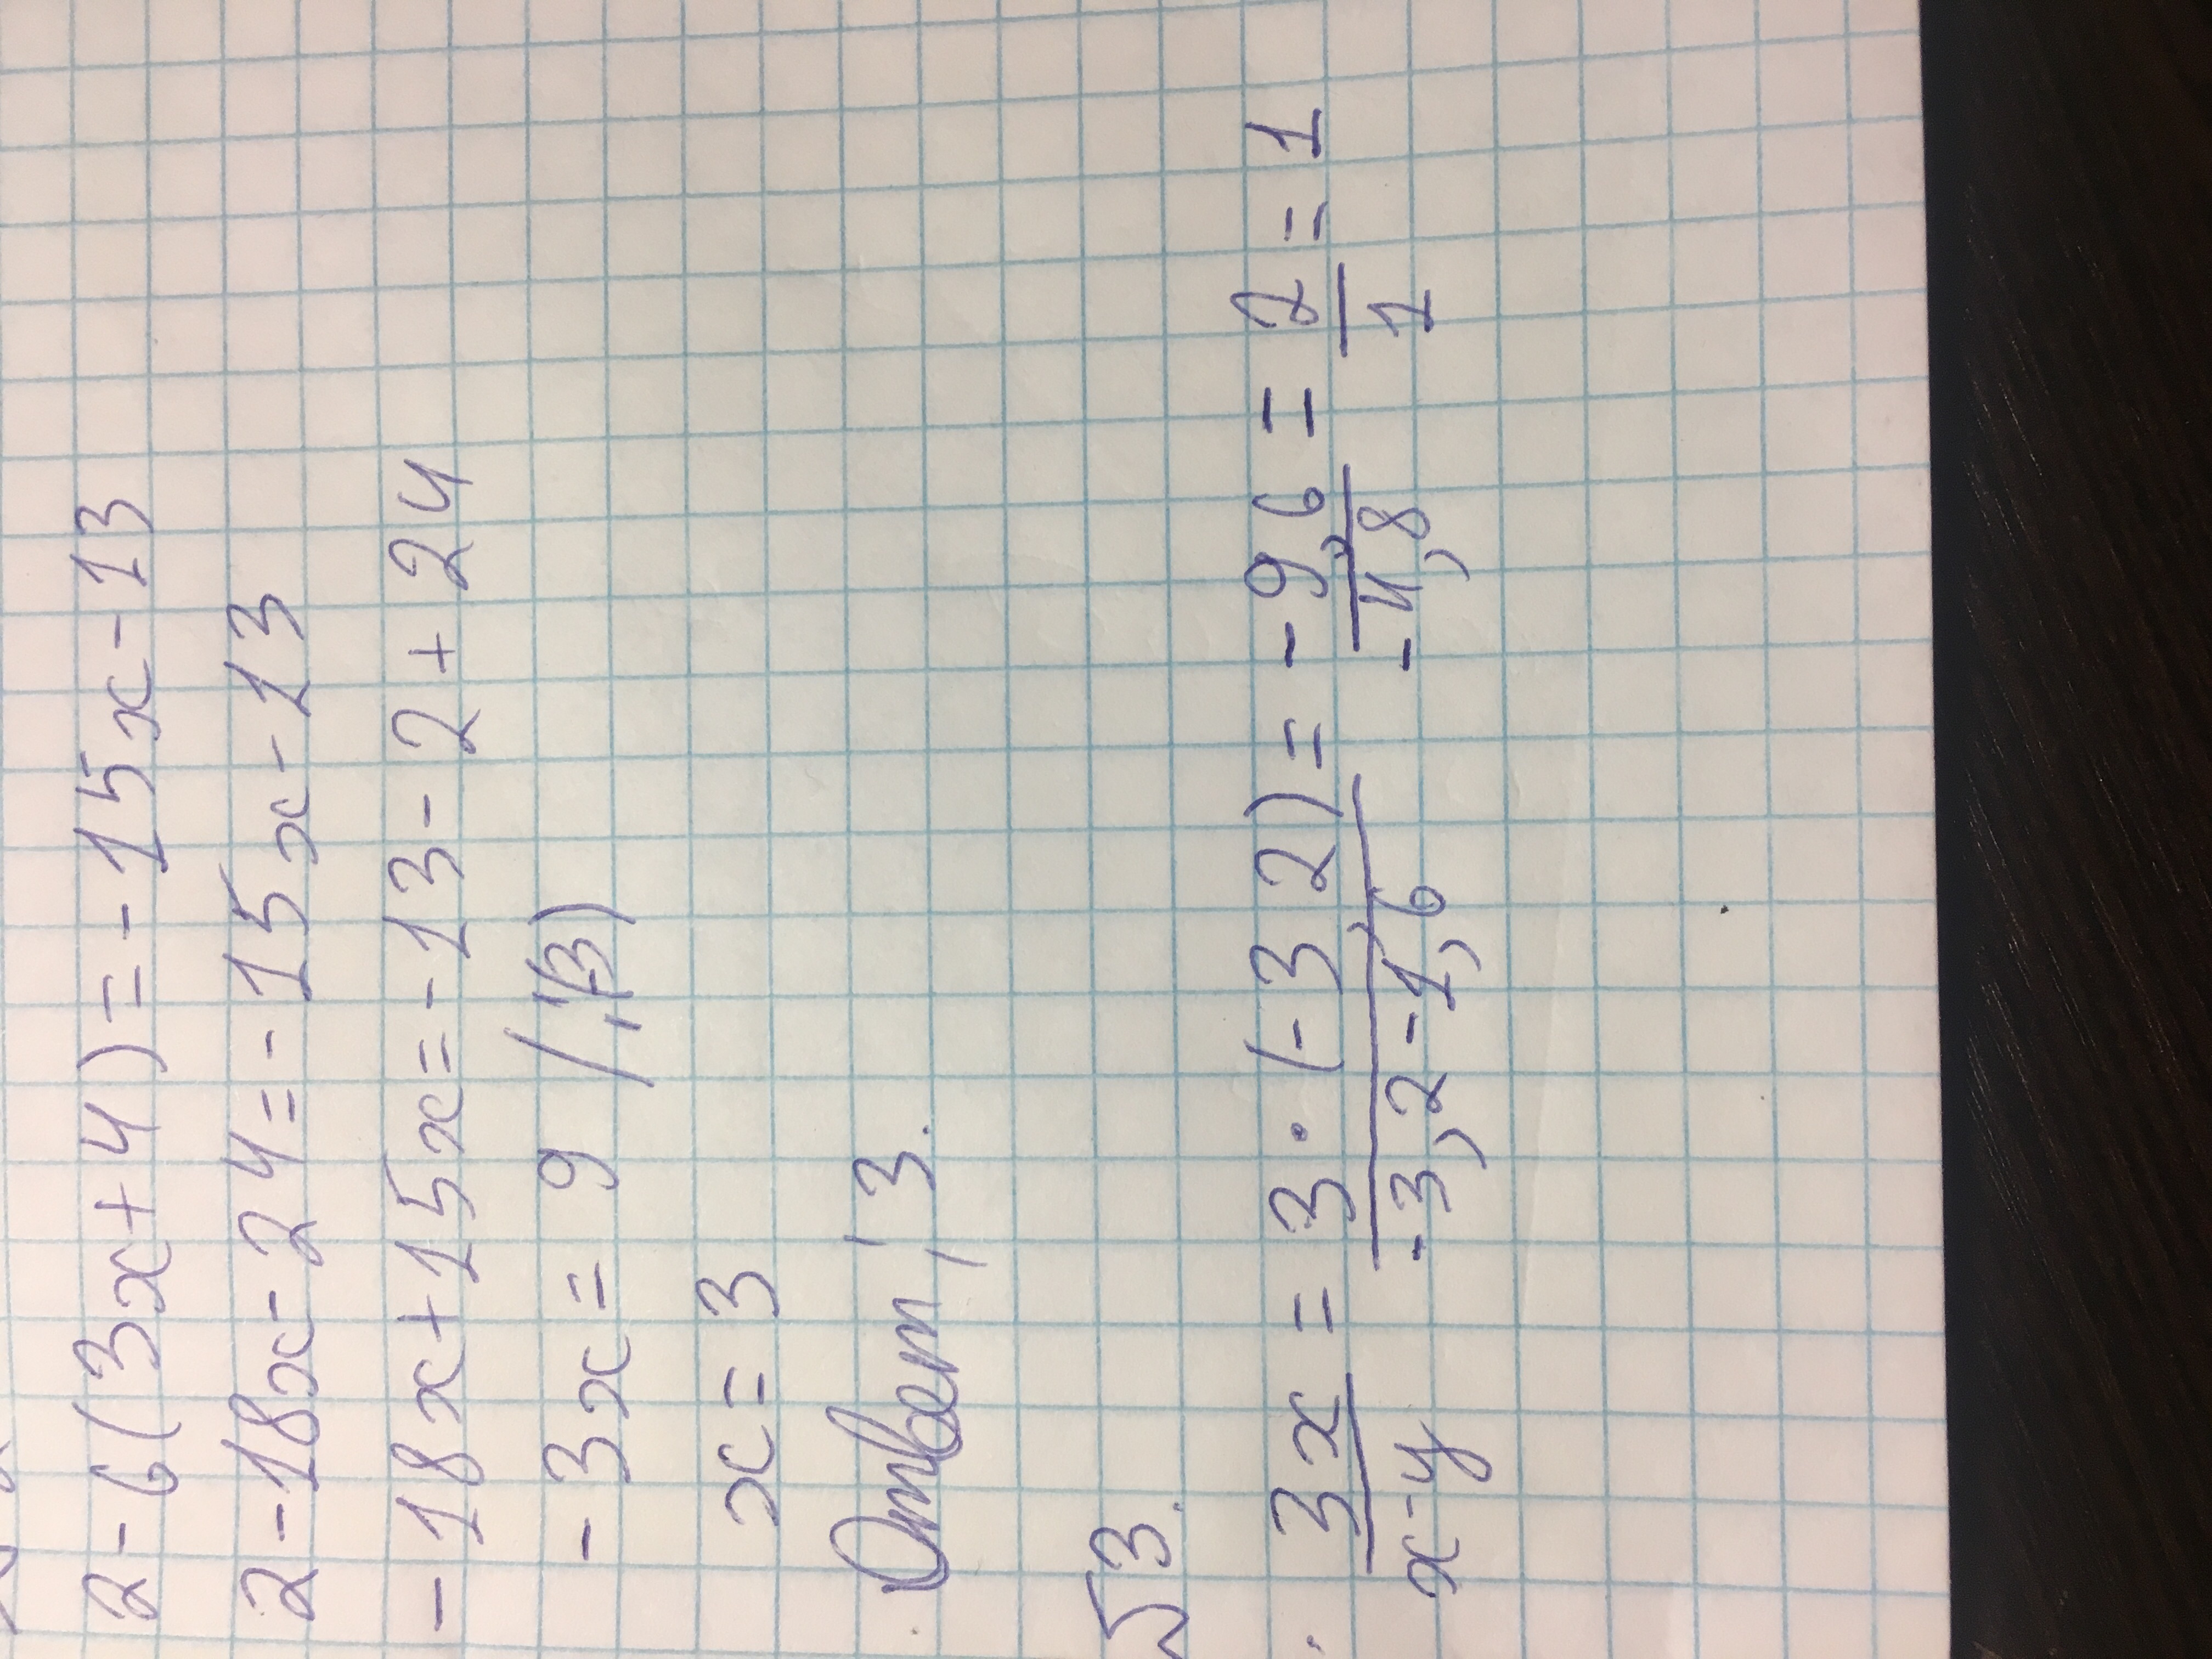 2-6(3x+4)=-15x-13
2-18x-24=-15x-13
-18x+15x=-13-2+24
-3x=9
x=3
Ответ: 3.
№3.
3x/x-y = 3·(-3,2)/-3,2-1,6 = -9,6/-4,8 = 2/1 = 1